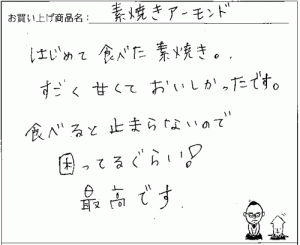 お買い上げ商品名： 素焼きアーモンド
はじめて 食べた 素焼き。
すごく 甘くて おいしかったです。
食べると 止まらないので
困ってるぐらい!
最高です.